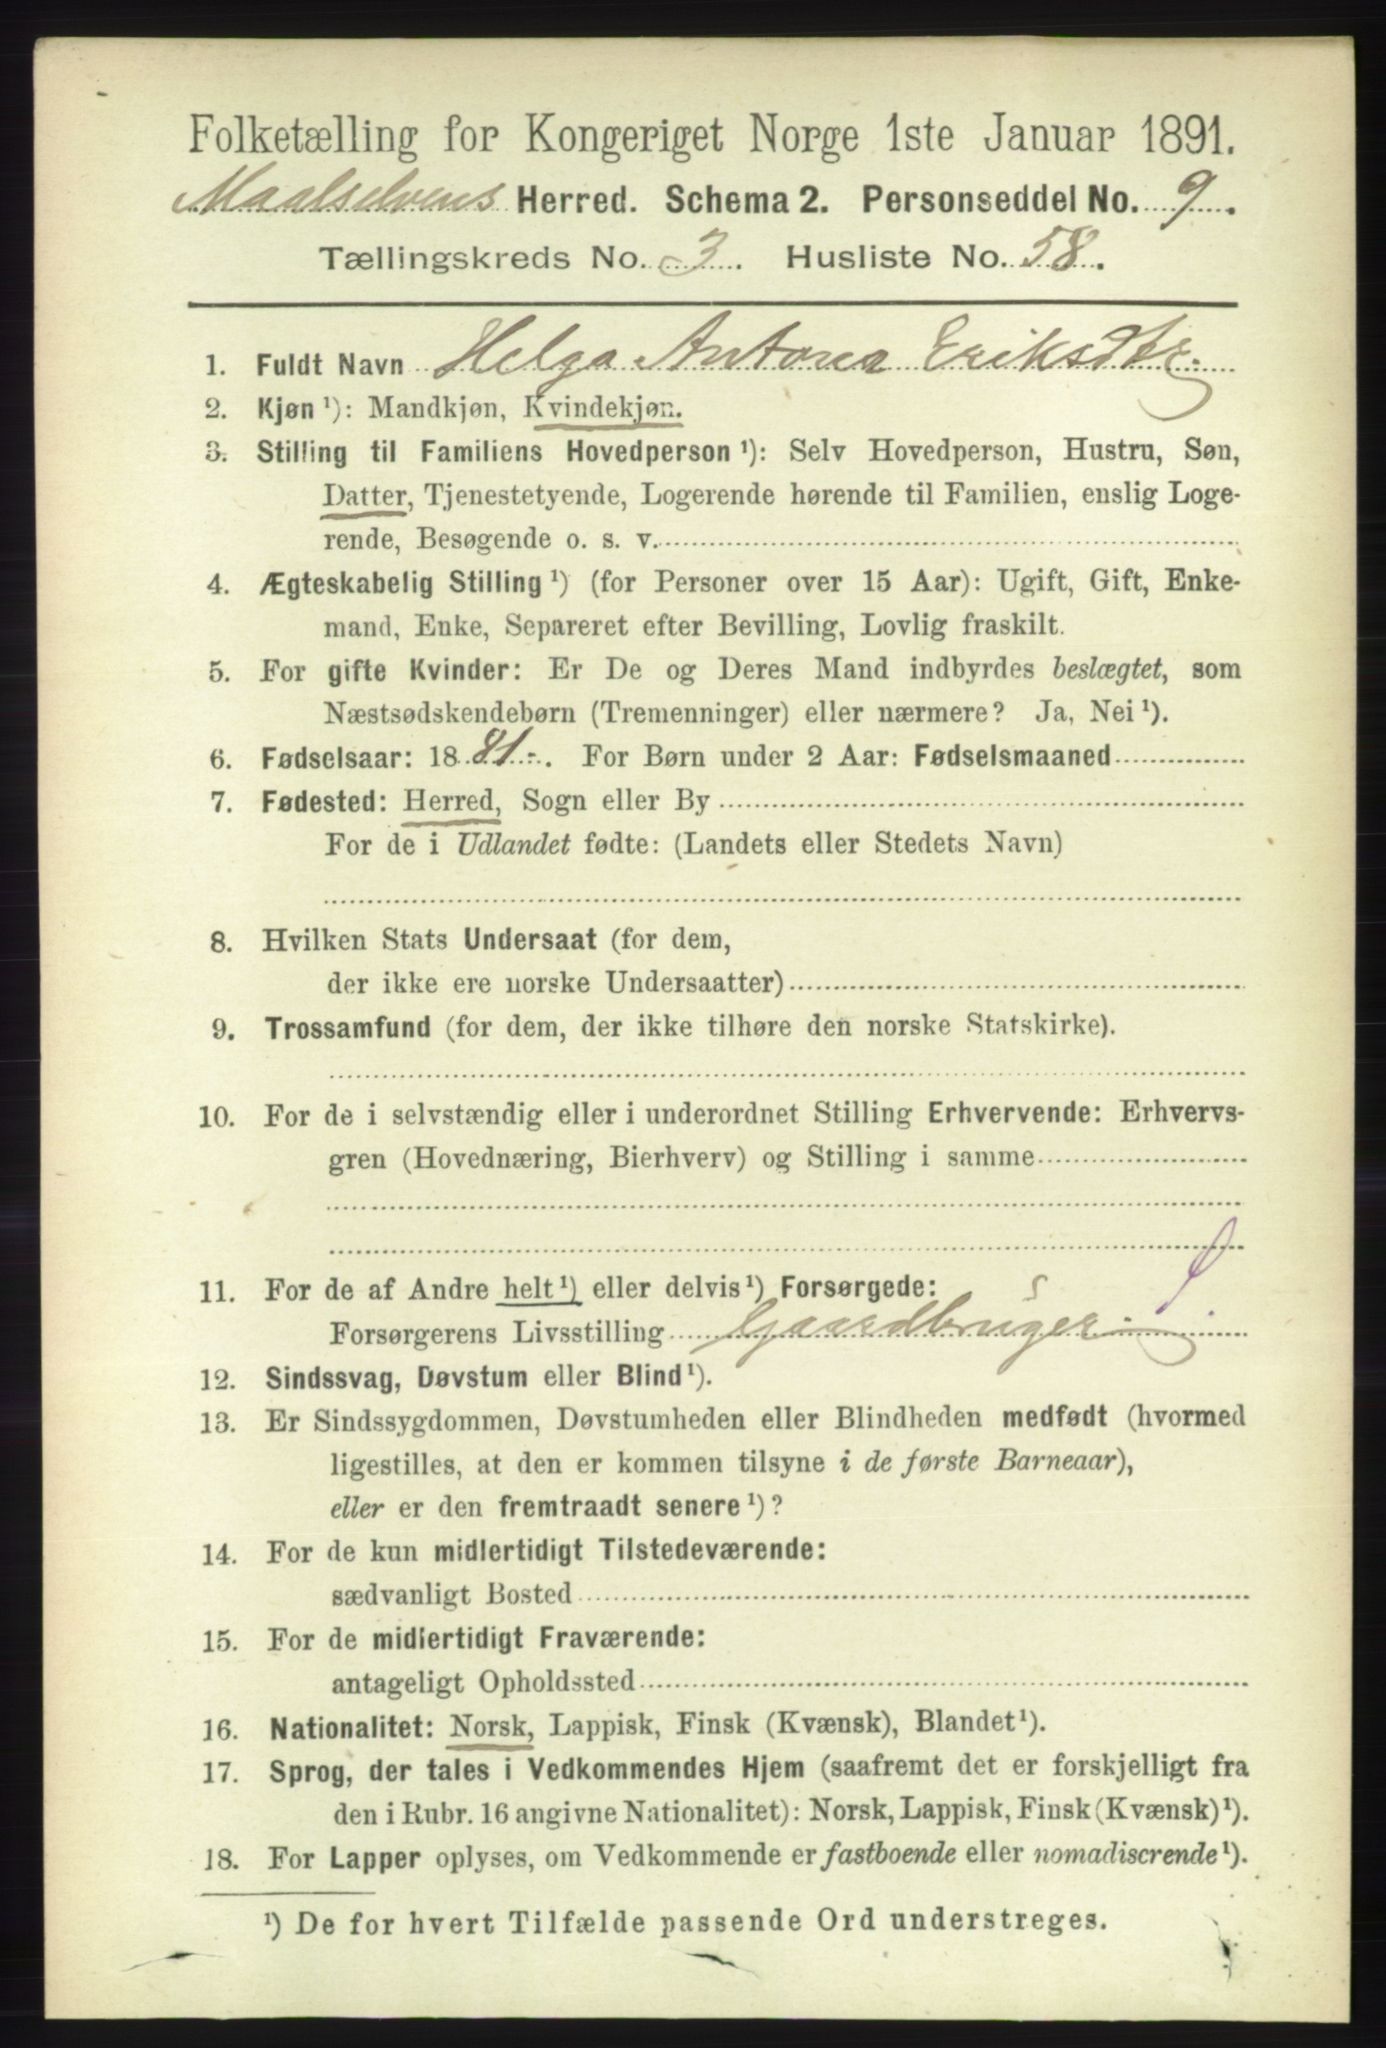 Folketælling for Kongeriget Norge 1ste Januar 1891.
Maalselvens Herred. Schema 2. Personseddel No. 9.
Tællingskreds No. 3. Husliste No. 58.
1. Fuldt Navn Helga Antona Eriksdtr.
2. Kjøn ¹): Mandkjøn, Kvindekjøn.
3. Stilling til Familiens Hovedperson ¹): Selv Hovedperson, Hustru, Søn,
Datter, Tjenestetyende, Logerende hørende til Familien, enslig Loge-
rende, Besøgende o. s. v.
4. Ægteskabelig Stilling ¹) (for Personer over 15 Aar): Ugift, Gift, Enke-
mand, Enke, Separeret efter Bevilling, Lovlig fraskilt.
5. For gifte Kvinder: Er De og Deres Mand indbyrdes beslægtet, som
Næstsødskendebørn (Tremenninger) eller nærmere? Ja, Nei ¹).
6. Fødselsaar: 1881-. For Børn under 2 Aar: Fødselsmaaned
7. Fødested: Herred, Sogn eller By
For de i Udlandet fødte: (Landets eller Stedets Navn)
8. Hvilken Stats Undersaat (for dem,
der ikke ere norske Undersaatter)
9. Trossamfund (for dem, der ikke tilhøre den norske Statskirke).
10. For de i selvstændig eller i underordnet Stilling Erhvervende: Erhvervs-
gren (Hovednæring, Bierhverv) og Stilling i samme
11. For de af Andre helt ¹) eller delvis ¹) Forsørgede: s
Forsørgerens Livsstilling Gaardbruger
12. Sindssvag, Døvstum eller Blind ¹).
13. Er Sindssygdommen, Døvstumheden eller Blindheden medfødt (hvormed
ligestilles, at den er kommen tilsyne i de første Barneaar),
eller er den fremtraadt senere ¹)?
14. For de kun midlertidigt Tilstedeværende:
sædvanligt Bosted
15. For de midlertidigt Fraværende:
antageligt Opholdssted
16. Nationalitet: Norsk, Lappisk, Finsk (Kvænsk), Blandet ¹).
17. Sprog, der tales i Vedkommendes Hjem (saafremt det er forskjelligt fra
den i Rubr. 16 angivne Nationalitet): Norsk, Lappisk, Finsk (Kvænsk) ¹).
18. For Lapper oplyses, om Vedkommende er fastboende eller nomadiserende ¹).
¹) De for hvert Tilfælde passende Ord understreges.